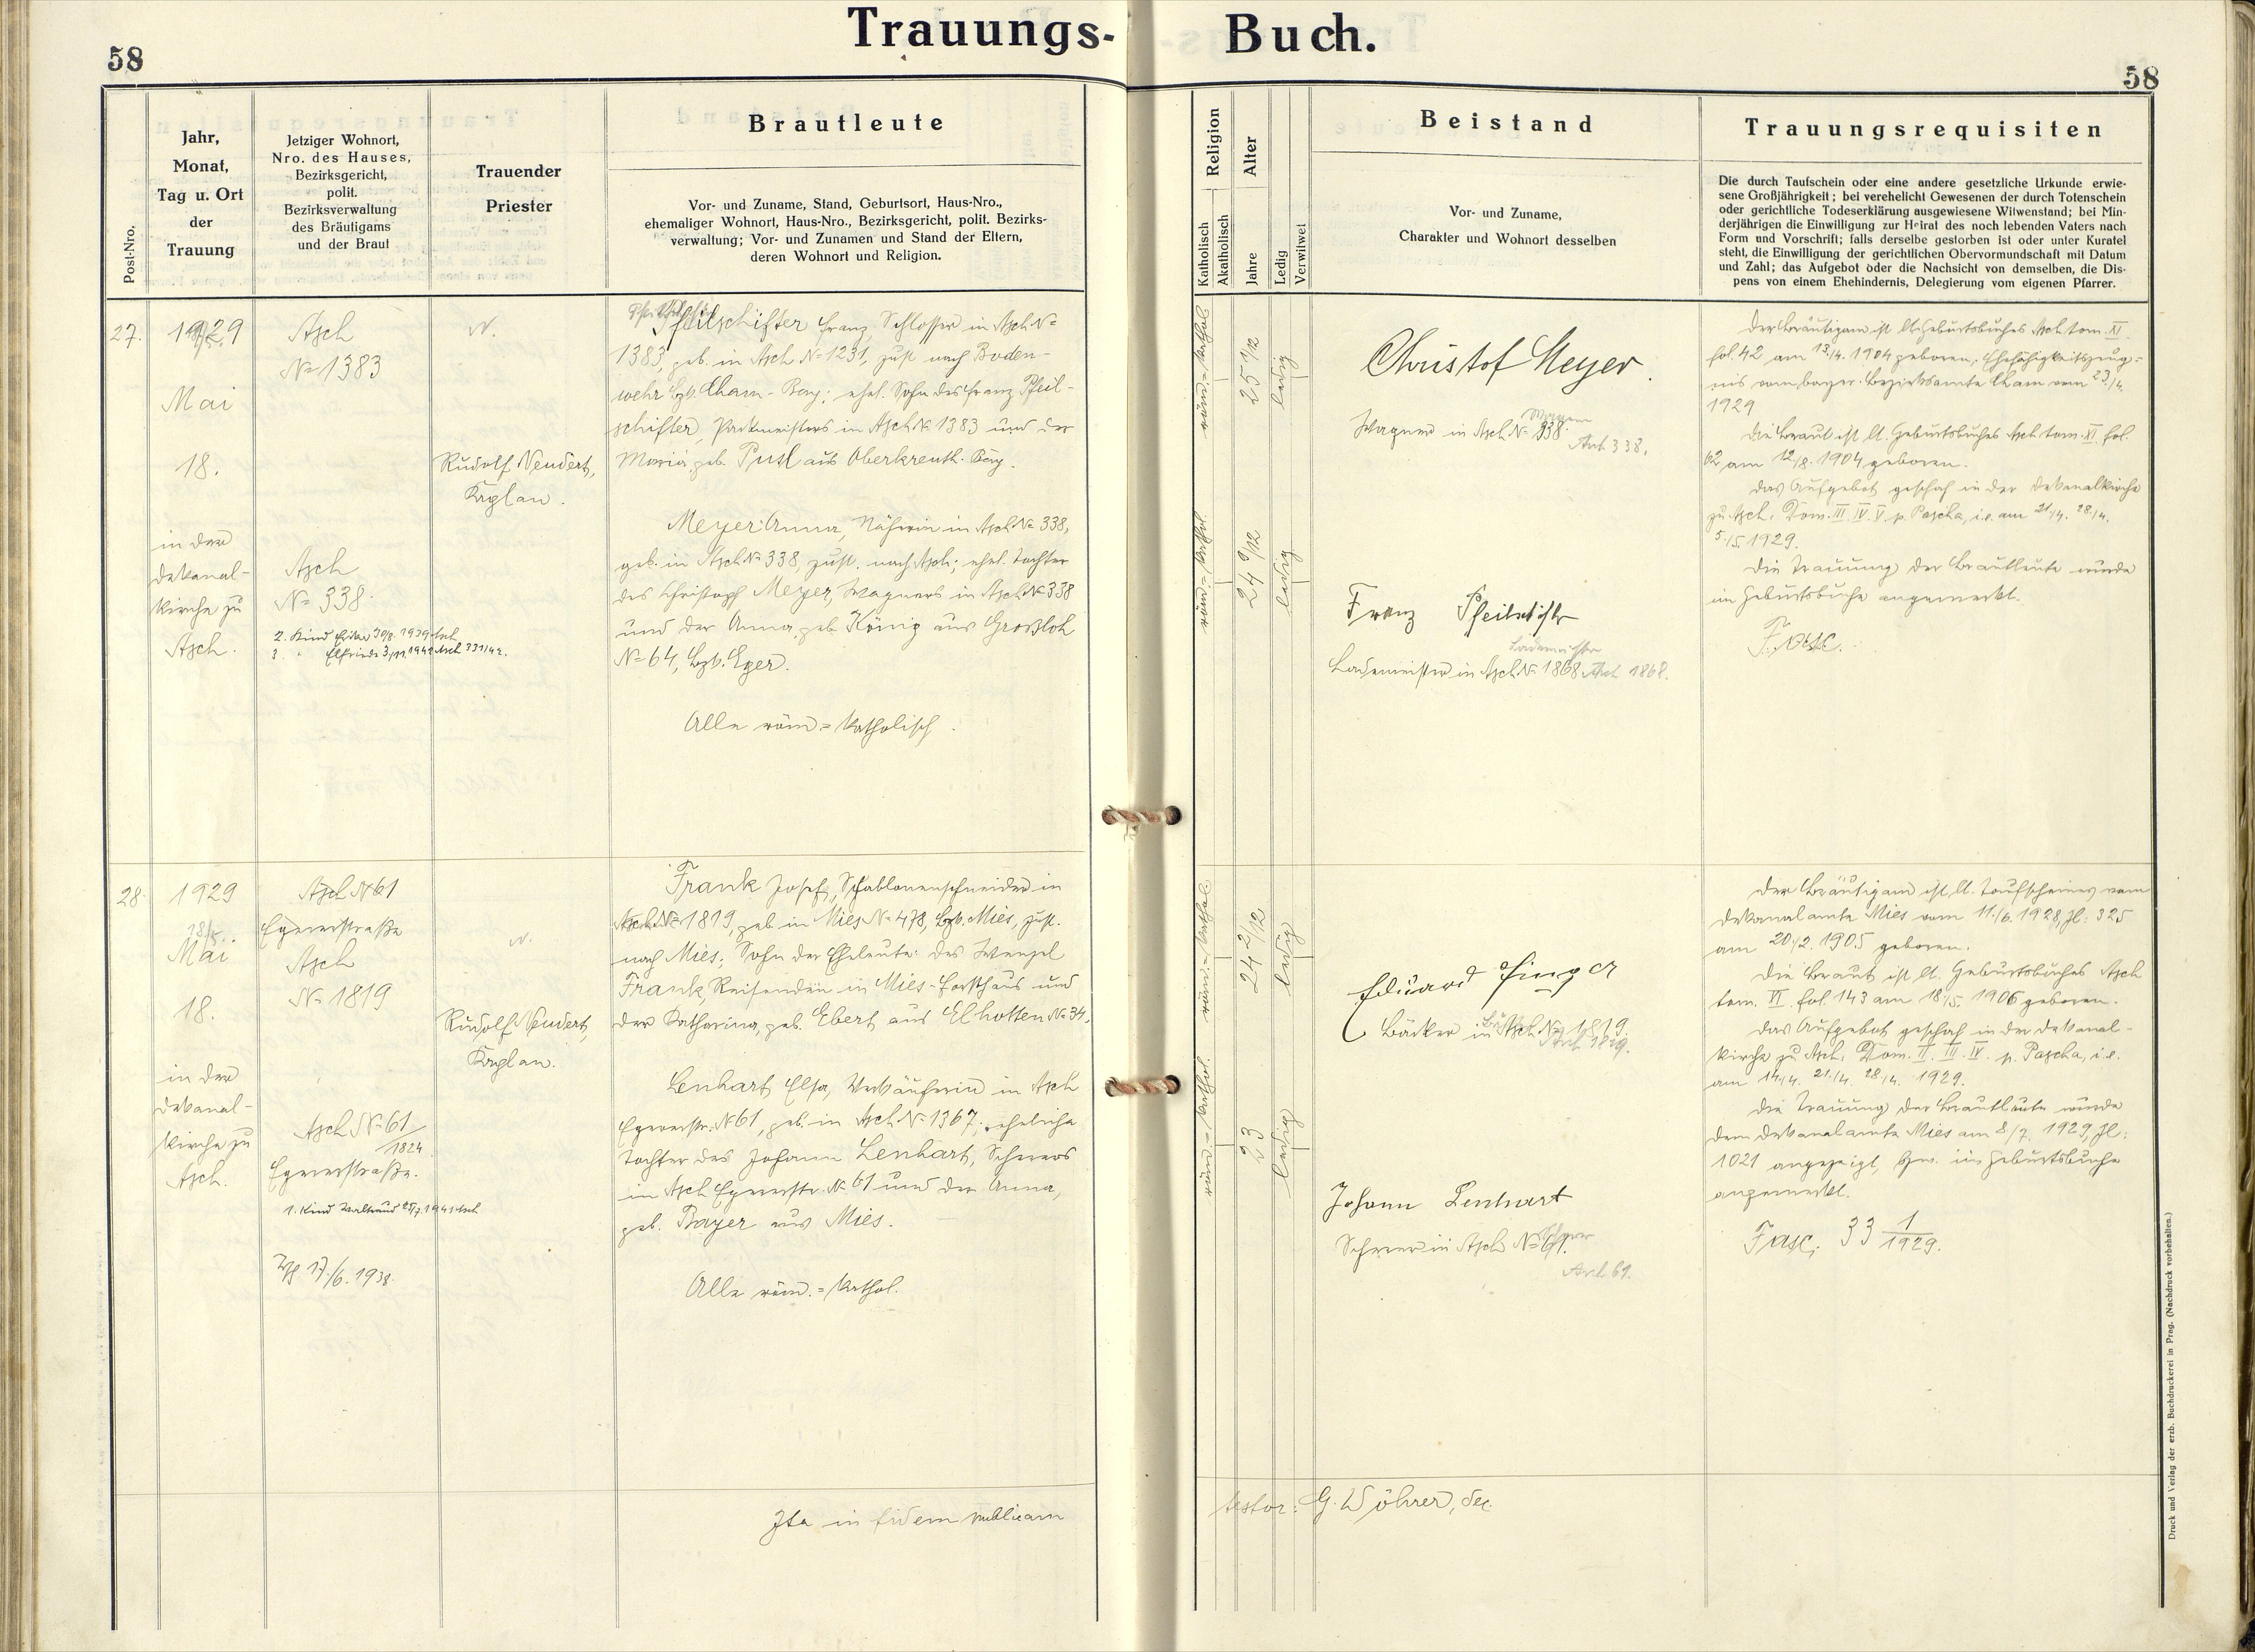 Trauungs-Buch.
58
58
Post-Nro.
Jahr,
Monat,
Tag u. Ort
der
Trauung
Jetziger Wohnort,
Nro. des Hauses,
Bezirksgericht,
polit.
Bezirksverwaltung
des Bräutigams
und der Braut
Trauender
Priester
Brautleute
Vor- und Zuname, Stand, Geburtsort, Haus-Nro.,
ehemaliger Wohnort, Haus-Nro., Bezirksgericht, polit. Bezirks-
verwaltung; Vor- und Zunamen und Stand der Eltern,
deren Wohnort und Religion.
Religion
Katholisch
Akatholisch
Alter
Jahre
Ledig
Verwitwet
Beistand
Vor- und Zuname,
Charakter und Wohnort desselben
Trauungsrequisiten
Die durch Taufschein oder eine andere gesetzliche Urkunde erwie-
sene Großjährigkeit; bei verehelicht Gewesenen der durch Totenschein
oder gerichtliche Todeserklärung ausgewiesene Witwenstand; bei Min-
derjährigen die Einwilligung zur Heirat des noch lebenden Vaters nach
Form und Vorschrift; falls derselbe gestorben ist oder unter Kuratel
steht, die Einwilligung der gerichtlichen Obervormundschaft mit Datum
und Zahl; das Aufgebot oder die Nachsicht von demselben, die Dis-
pens von einem Ehehindernis, Delegierung vom eigenen Pfarrer.
27.
1929
Mai
18.
in der
Dekanal-
kirche zu
Asch.
Asch
No 1383
Asch
No 338.
2. Kind Erika 30/8. 1939 Asch
3. " Elfriede 3./11. 1942 Asch 331/42.
Rudolf Neudert,
Kaplan.
Pfeilschifter Franz, Schlosser in Asch No
1383, geb. in Asch No 1231, zust. nach Boden-
wehr Bzk. Cham - Bay; ehel. Sohn des Franz Pfeil-
schifter, Packmeisters in Asch No 1383 und der
Maria, geb. Pusl aus Oberkreuth. Bay.
Meyer Anna, Näherin in Asch No 338,
geb. in Asch No 338, zust. nach Asch; ehel. Tochter
des Christoph Meyer, Wagners in Asch No 338
und der Anna, geb. König aus Großloh
No 64, Bzk. Eger.
Alle röm.=katholisch.
röm.=kathol.
25 1/12
ledig
röm.=kathol.
24 9/12
ledig
Christof Meyer.
Wagner in Asch No 338.
Asch 338.
Franz Pfeilschifter
Lademeister
Lademeister in Asch No 1868 Asch 1868.
Der Bräutigam ist lt. Geburtsbuches Asch tom. XI.
fol. 42 am 13./4. 1904 geboren, Ehefähigkeitszeug=
nis vom bayer. Bezirksamte Cham vom 23./4.
1929
Die Braut ist lt. Geburtsbuches Asch tom. XI. fol.
62 am 12./8. 1904 geboren.
Das Aufgebot geschah in der Dekanalkirche
zu Asch: Dom. III. IV. V. p. Pascha, i.e. am 21./4. 28./4.
5./5. 1929.
Die Trauung der Brautleute wurde
im Geburtsbuche angemerkt.
Fasc.
28.
1929
18/5.
Mai
18.
in der
Dekanal-
kirche zu
Asch.
Asch No 61
Egererstraße
Asch
No 1819
Asch No 61/1824
Egererstraße.
1. Kind Waltraud 25/7. 1941 Asch
17./6. 1938.
Rudolf Neudert,
Kaplan.
Frank Josef, Schablonenschneider in
Asch No 1819, geb. in Mies No 478, Bzk. Mies, zust.
nach Mies; Sohn der Eheleute: des Wenzel
Frank, Reisenden in Mies - Forsthaus und
der Katharina, geb. Ebert aus Elhotten No 34.
Lenhart Elsa, Verkäuferin in Asch
Egererstr. No 61, geb. in Asch No 1367; eheliche
Tochter des Johann Lenhart, Scherers
in Asch Egererstr. No 61 und der Anna,
geb. Bayer aus Mies.
Alle röm.=kathol.
röm.=kathol.
24 2/12
ledig
röm.=kathol.
23
ledig
Eduard Singer
Bäcker in Asch No 1819.
Asch 1819.
Johann Lenhart
Scherer in Asch No 61.
Asch 61.
Der Bräutigam ist lt. Taufscheines vom
Dekanalamte Mies vom 11./6. 1928, Zl: 325
am 20./2. 1905 geboren.
Die Braut ist lt. Geburtsbuches Asch
tom. VI. fol. 143 am 18./5. 1906 geboren.
Das Aufgebot geschah in der Dekanal-
kirche zu Asch: Dom. II. III. IV. p. Pascha, i.e.
am 14./4. 21./4. 28./4. 1929.
Die Trauung der Brautleute wurde
dem Dekanalamte Mies am 8/7. 1929, Zl:
1021 angezeigt, bzw. im Geburtsbuche
angemerkt.
Fasc. 33 1/1929.
Ita in fidem publicam
testor: G. Wöhrer, Dec.
Druck und Verlag der erzb. Buchdruckerei in Prag. (Nachdruck vorbehalten.)